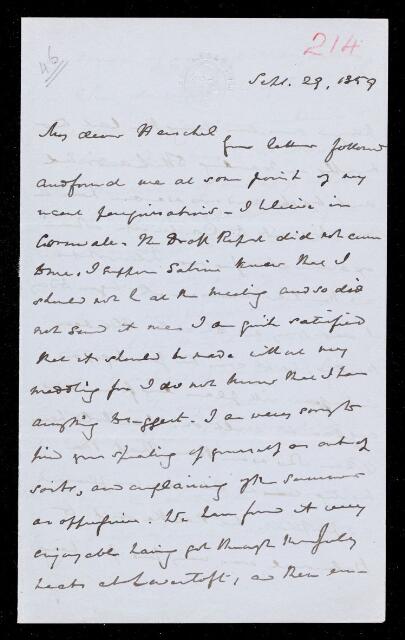 46
214
Sept. 29, 1859
My dear Herschel
Your letter followed
and found me at some point of my
recent perigrinations - I believe in
Cornwall. The Draft Report did not come
to me. I suppose Sabine knew that I
should not be at the meeting and so did
not send it me. I am quite satisfied
that it should be made without my
meddling for I do not know that I have
anything to suggest. I am very sorry to
find you speaking of yourself as out of
sorts, and complaining of the summer
as oppressive. We have found it very
enjoyable having got through the July
heats at Lowestoft, and then en-